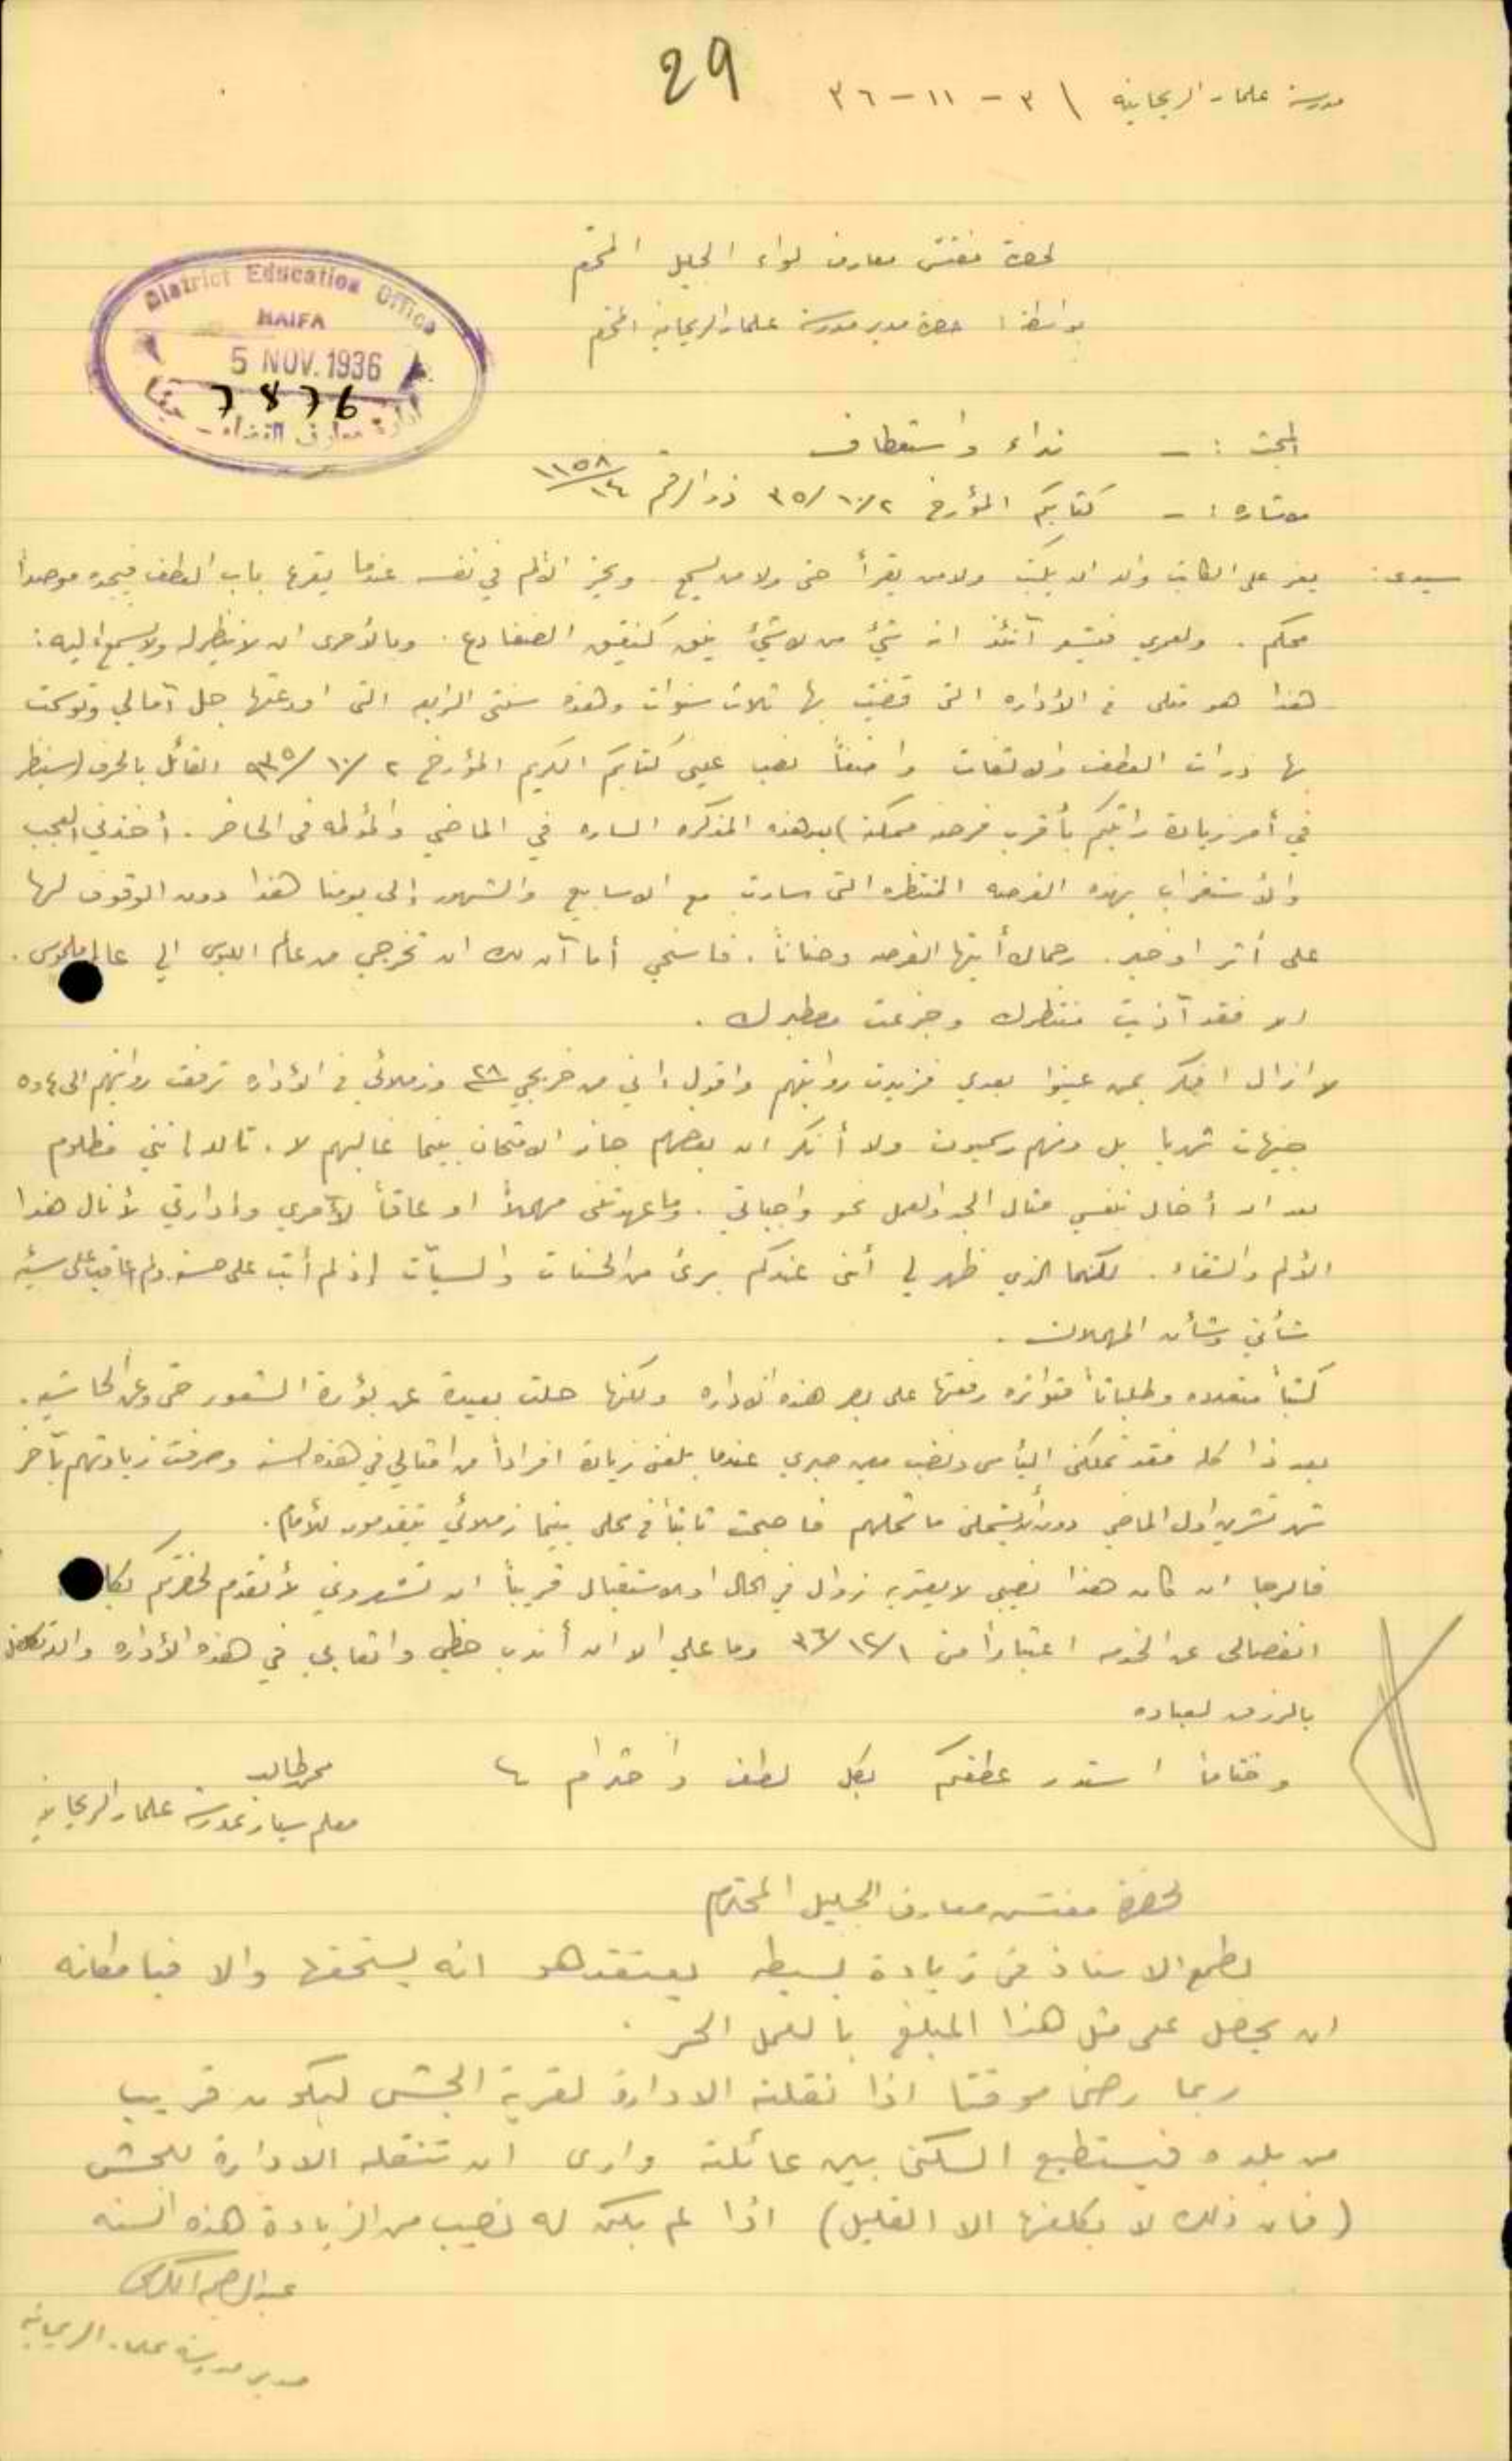 29
مدرسة علما - الريحانية \ ٣ - ١١ - ٣٦
لحضرة مفتش معارف لواء الجليل المحترم
بواسطة : حضرة مدير مدرسة علما - الريحانية المحترم
District Education Office
HAIFA
5 NOV. 1936
7876
ادارة معارف القضاء - حيفا
المبحث : - نداء واستعطاف
الاشارة : - كتابكم المؤرخ ٢/١٠/٣٥ ذو الرقم ١١٥٨/١٤
سيدي : يعز على الكاتب أن يكتب ولا من يقرأ حتى ولا من يسمع . ويحز الألم في نفسه عندما يقرع باب العطف فيجده موصداً
محكم . ولعمري فيشعر آنئذ انه شيء من لا شيء ينق كنقيق الضفادع . وبالأحرى ان لا ينظر له ولا يسمع إليه :
هذا هو مثلي في الأداره التي قضيت بها ثلاث سنوات وهذه سنتي الرابعه التي اودعتها جل آمالي وتوسمت
بها ذرات العطف والالتفات واضعاً نصب عيني كتابكم الكريم المؤرخ ٢/١٠/٩٣٥ القائل بالحرف (سينظر
في أمر زيادة راتبكم بأقرب فرصة ممكنة) بيد هذه المذكره الساره في الماضي والمؤلمه في الحاضر . أخذني العجب
والأستغراب بهذه الفرصه المنتظره التي سارت مع الاسابيع والشهور إلى يومنا هذا دون الوقوف لها
على أثر او خبر . رحماك أيتها الفرصه وحناناً . فاسنحي أما آن لك ان تخرجي من عالم اللبس الى عالم ملموس .
فقد آذيت منتظرك وجزعت
لا ازال افكر بمن عينوا بعدي فزيدت رواتبهم واقول إني من خريجي ٢٨ وزملائي في الأداره ترفعت رواتبهم الى ٤ و ٥
جنيهات شهريا بل ومنهم رسميون ولا أنكر ان بعضهم حاز الامتحان بينما غالبهم لا . تالله إنني مظلوم
بعد ان أخال بنفسي مثال الجد والعمل نحو واجباتي . وما عهدتني مهملاً او عاقاً لآمري وإدارتي لأنال هذا
الألم والشقاء . لكنما الذي ظهر لي أنني عندكم بريء من الحسنات والسيآت إذ لم أثب على حسنه ولم اعاقب على سيئه
شأني وشأن المهملات .
كتباً متعدده وطلباتاً متواتره رفعتها على يد هذه الاداره ولكنها حلت بعيدة عن بؤرة الشعور حتى وعن الحاشيه .
بعد ذا كله فقد تملكني اليأس ونضب معين صبري عندما بلغني زيادة افراداً من امثالي في هذه السنه وصرفت زيادتهم بآخر
شهر تشرين اول الماضي دون أن يشملني ما شملهم فأصبحت ثابتاً في محلي بينما زملائي يتقدمون للأمام .
فالرجا ان كان هذا نصيبي لا يعتريه زوال في الحال او الاستقبال قريباً ان تشعروني لأتقدم لحضرتكم بكتاب
انفصالي عن الخدمه اعتباراً من ١/١٢/٣٦ وما علي الا ان أندب حظي واتعابي في هذه الأداره والله كفيل
بالرزق لعباده
وختاماً استدر عطفكم بكل لطف واحترام
محمد طالب
معلم سيار بمدرسة علما - الريحانية
لحضرة مفتش معارف الجليل المحترم
يطمع الاستاذ في زيادة بسيطه يعتقد هو انه يستحقها والا فبامكانه
ان يحصل على مثل هذا المبلغ بالعمل الحر .
ربما رضي موقتا اذا نقلته الادارة لقرية الجش ليكون قريب
من بلده فيستطيع السكنى بين عائلته وارى ان تنقله الادارة للجش
(فان ذلك لا يكلفها الا القليل) اذا لم يكن له نصيب من الزيادة هذه السنه
مدير مدرسة علما - الريحانية